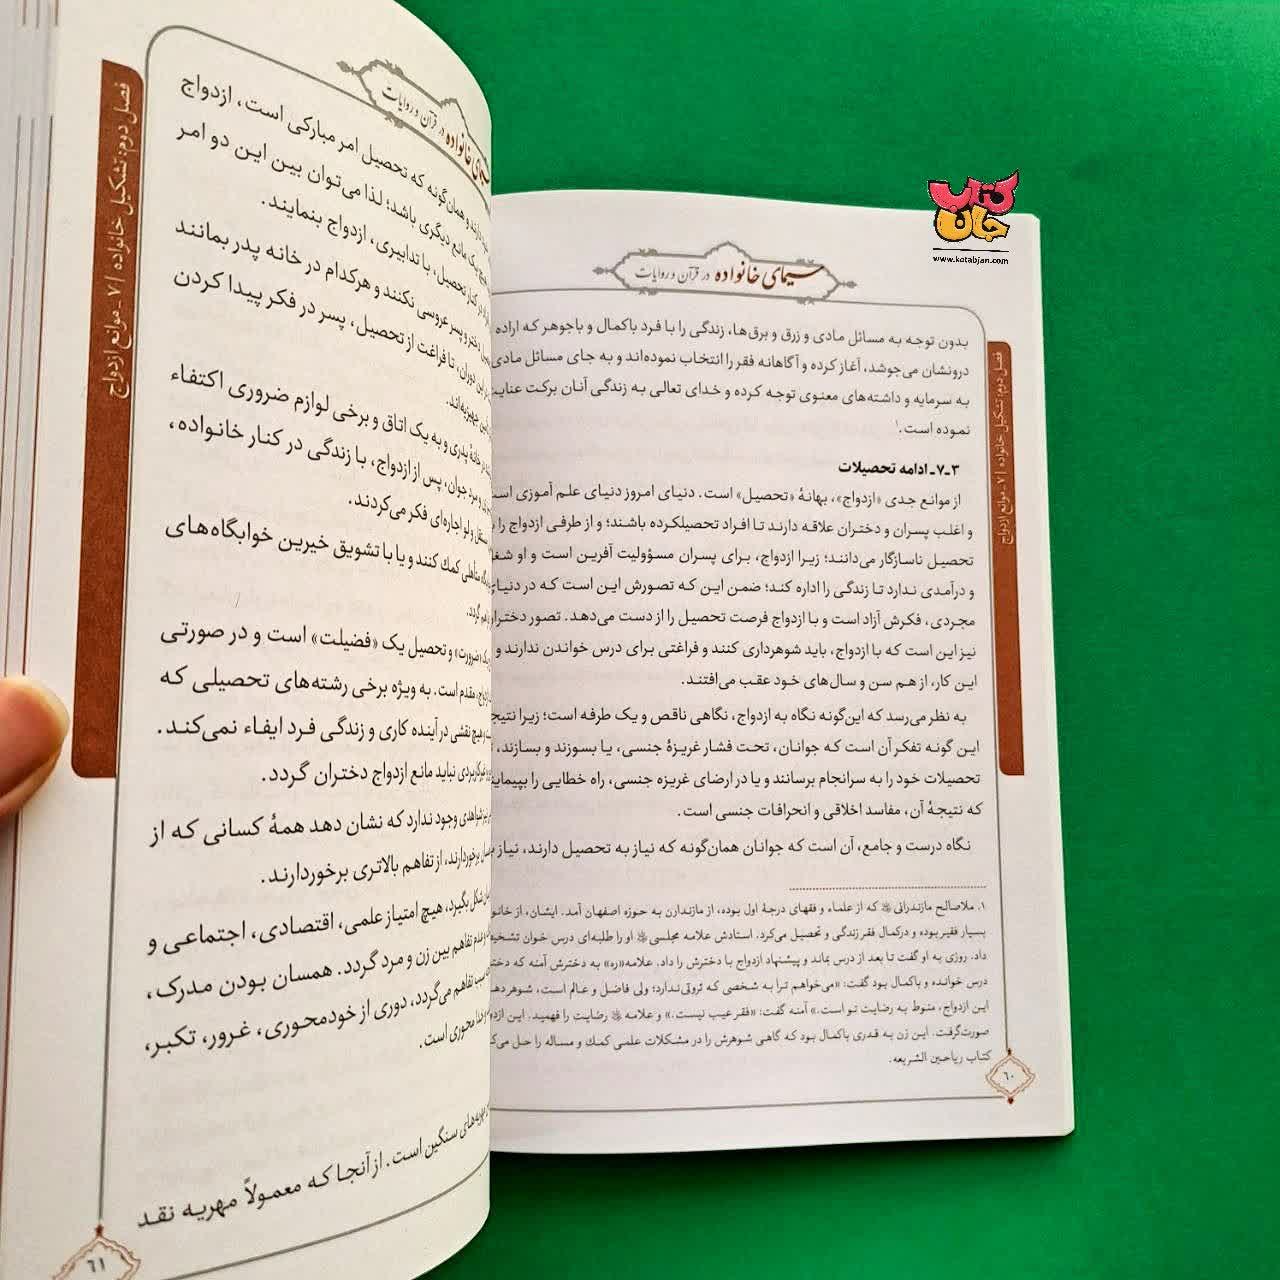 کتاب
جان
www.ketabjan.com
سیمای خانواده در قرآن و روایات
فصل دوم: تشکیل خانواده / ۷ـ موانع ازدواج
بدون توجه به مسائل مادی و زرق و برق‌ها، زندگی را با فرد باکمال و باجوهر که اراده
درونشان می‌جوشد، آغاز کرده و آگاهانه فقر را انتخاب نموده‌اند و به جای مسائل مادی
به سرمایه و داشته‌های معنوی توجه کرده و خدای تعالی به زندگی آنان برکت عنایت
نموده است.۱
۳ـ۷ـ ادامه تحصیلات
از موانع جدی «ازدواج»، بهانۀ «تحصیل» است. دنیای امروز دنیای علم آموزی است
و اغلب پسران و دختران علاقه دارند تا افراد تحصیلکرده باشند؛ و از طرفی ازدواج را با
تحصیل ناسازگار می‌دانند؛ زیرا ازدواج، برای پسران مسؤولیت آفرین است و او شغل
و درآمدی ندارد تا زندگی را اداره کند؛ ضمن این که تصورش این است که در دنیای
مجردی، فکرش آزاد است و با ازدواج فرصت تحصیل را از دست می‌دهد. تصور دختران
نیز این است که با ازدواج، باید شوهرداری کنند و فراغتی برای درس خواندن ندارند و
این کار، از هم سن و سال‌های خود عقب می‌افتند.
به نظر می‌رسد که این‌گونه نگاه به ازدواج، نگاهی ناقص و یک طرفه است؛ زیرا نتیجۀ
این گونه تفکر آن است که جوانان، تحت فشار غریزۀ جنسی، یا بسوزند و بسازند،
تحصیلات خود را به سرانجام برسانند و یا در ارضای غریزه جنسی، راه خطایی را بپیمایند
که نتیجۀ آن، مفاسد اخلاقی و انحرافات جنسی است.
نگاه درست و جامع، آن است که جوانان همان‌گونه که نیاز به تحصیل دارند، نیاز
۱. ملاصالح مازندرانی که از علماء و فقهای درجۀ اول بوده، از مازندارن به حوزه اصفهان آمد. ایشان، از
بسیار فقیر بوده و درکمال فقر زندگی و تحصیل می‌کرد. استادش علامه مجلسی او را طلبه‌ای درس خوان تشخیص
داد. روزی به او گفت تا بعد از درس بماند و پیشنهاد ازدواج با دخترش را داد. علامه«ره» به دخترش آمنه که
درس خوانده و باکمال بود گفت: «می‌خواهم ترا به شخصی که ثروتی ندارد؛ ولی فاضل و عالم است، شوهر
این ازدواج، منوط به رضایت تو است.» آمنه گفت: «فقر عیب نیست.» و علامه رضایت را فهمید. این
صورت‌گرفت. این زن به قدری باکمال بود که گاهی شوهرش را در مشکلات علمی کمك و مساله را حل
کتاب ریاحین الشریعه.
۶۰
سیمای خانواده در قرآن و روایات
فصل دوم: تشکیل خانواده / ۷ـ موانع ازدواج
و همان‌گونه که تحصیل امر مبارکی است، ازدواج
یک مانع دیگری باشد؛ لذا می‌توان بین این دو امر
در کنار تحصیل، با تدابیری، ازدواج بنمایند.
دختر و پسر عروسی نکنند و هرکدام در خانه پدر بمانند
این دوران، تا فراغت از تحصیل، پسر در فکر پیدا کردن
جهیزیه‌اند.
خانۀ پدری و به یک اتاق و برخی لوازم ضروری اکتفاء
و مرد جوان، پس از ازدواج، با زندگی در کنار خانواده،
مستقل ولو اجاره‌ای فکر می‌کردند.
متأهلی کمك کنند و یا با تشویق خیرین خوابگاه‌های
گردد.
«ضرورت» و تحصیل یک «فضیلت» است و در صورتی
مقدم است. به ویژه برخی رشته‌های تحصیلی که
هیچ نقشی در آینده کاری و زندگی فرد ایفاء نمی‌کند.
نباید مانع ازدواج دختران گردد.
شواهدی وجود ندارد که نشان دهد همۀ کسانی که از
برخوردارند، از تفاهم بالاتری برخوردارند.
شکل بگیرد، هیچ امتیاز علمی، اقتصادی، اجتماعی و
تفاهم بین زن و مرد گردد. همسان بودن مدرک،
سبب تفاهم می‌گردد، دوری از خودمحوری، غرور، تکبر،
محوری است.
مهریه‌های سنگین است. از آنجا که معمولاً مهریه نقد
۶۱